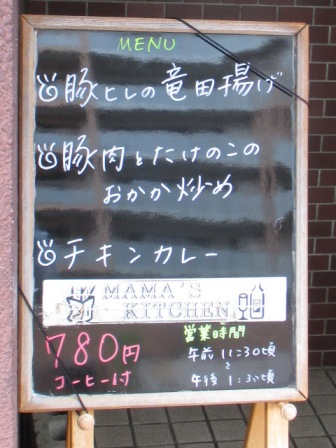 MENU
豚ヒレの竜田揚げ
豚肉とたけのこの
おかか炒め
チキンカレー
MAMA'S
KITCHEN
780円
コーヒー付
営業時間
午前 11:30頃
～
午後 1:30頃